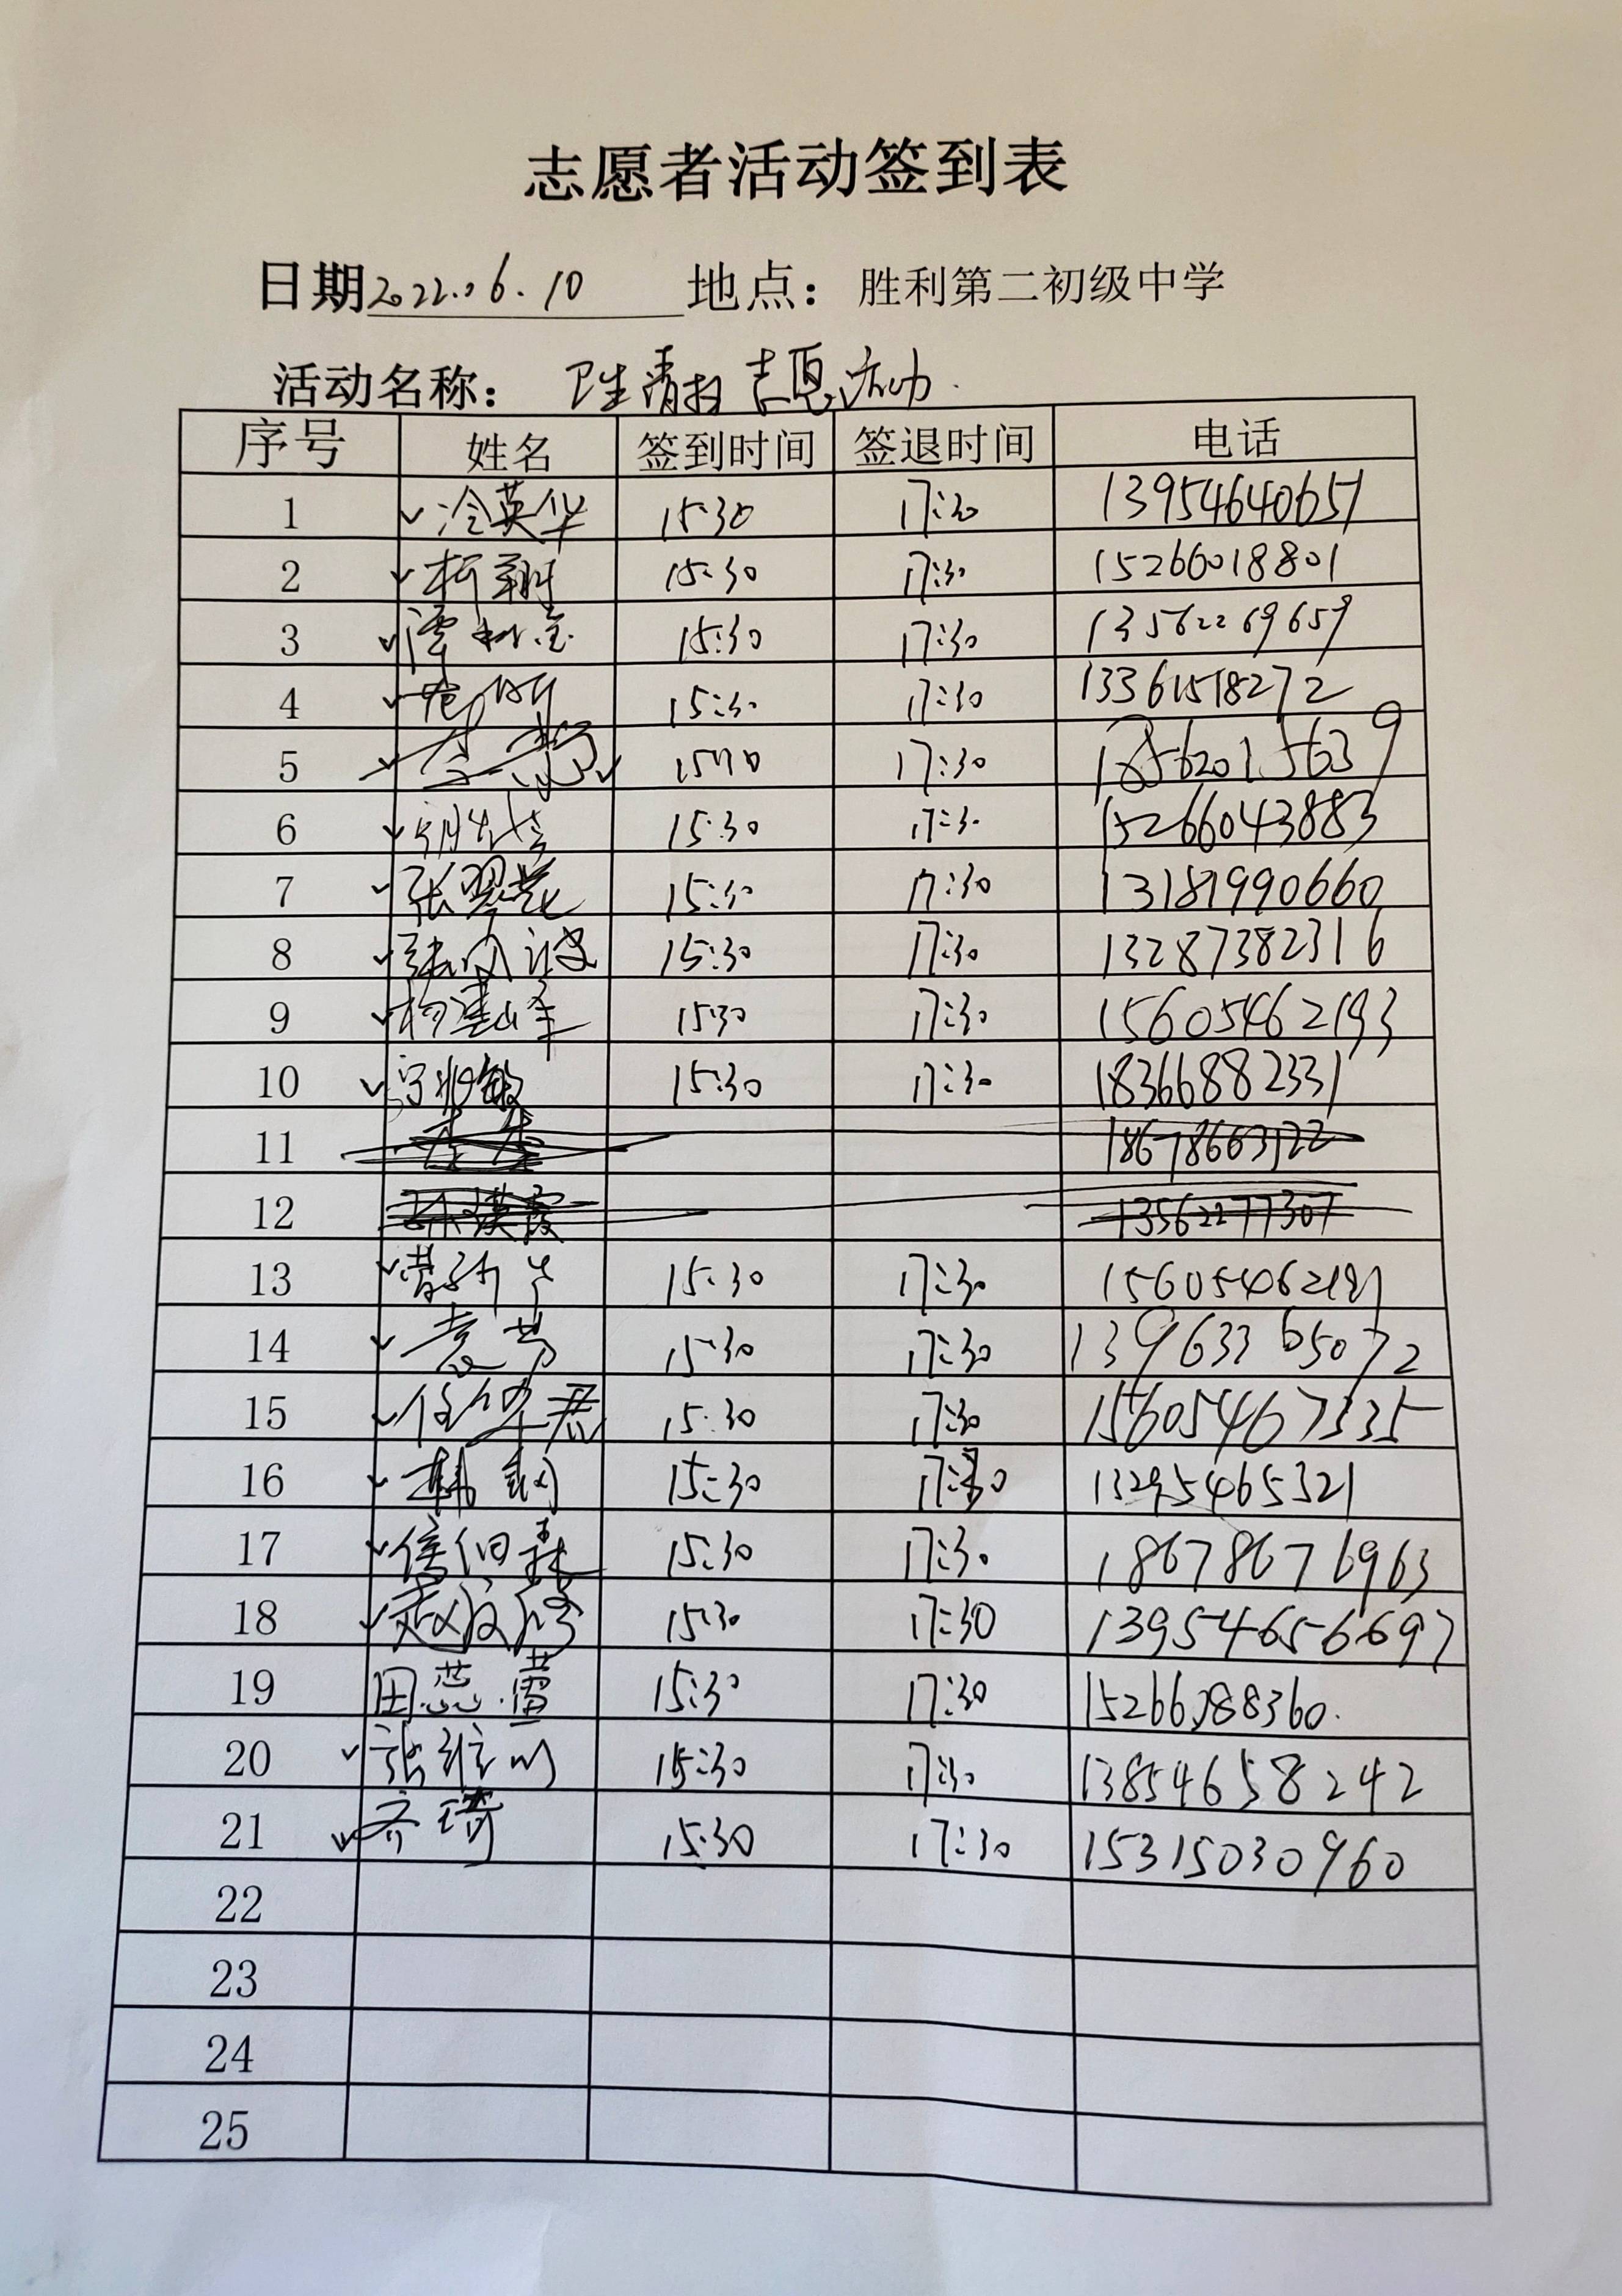 志愿者活动签到表
日期2022.06.10 地点：胜利第二初级中学
活动名称： 卫生清扫志愿活动.
序号 姓名 签到时间 签退时间 电话
1 冷英华 15:30 17:30 13954640651
2 15:30 17:30 15266018801
3 15:30 17:30 13562269659
4 15:30 17:30 13361518272
5 17:30 18562015639
6 15:30 17:30 15266043883
7 张翠花 15:30 17:30 13181990660
8 15:30 17:30 13287382316
9 15:30 17:30 15605462193
10 15:30 17:30 18366882331
11
12 13562277307
13 15:30 17:30
14 袁芳 15:30 17:30 13963365072
15 15:30 17:30 15605467335
16 15:30 17:30 13295465321
17 15:30 17:30 18678676963
18 15:30 17:30 13954656697
19 田蕊蕾 15:30 17:30 15266088360.
20 15:30 17:30 13854658242
21 齐琦 15:30 17:30 15315030960
22
23
24
25